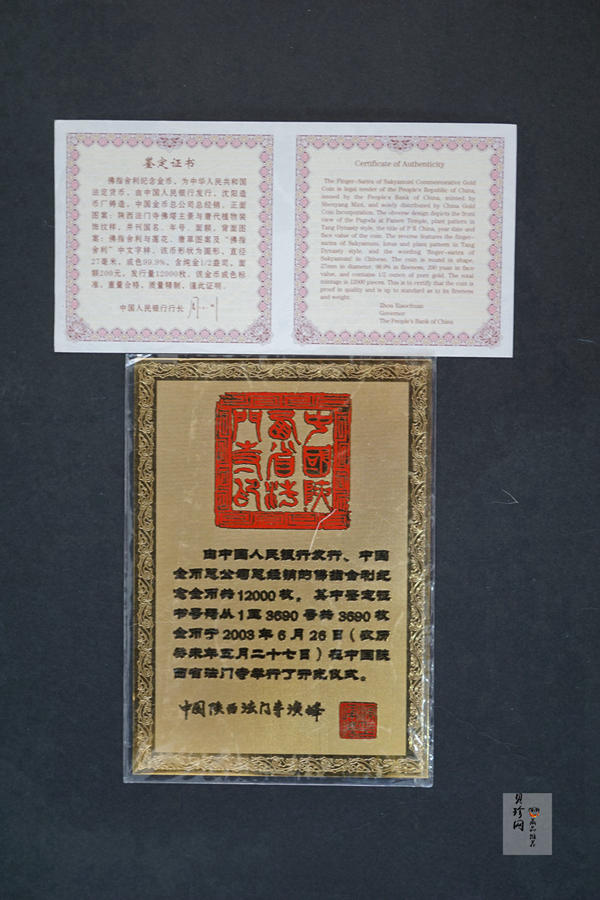 鉴定证书
佛指舍利纪念金币,为中华人民共和国
法定货币,由中国人民银行发行,沈阳造
币厂铸造,中国金币总公司总经销。正面
图案:陕西法门寺佛塔主景与唐代植物装
饰纹样,并刊国名、年号、面额,背面图
案:佛指舍利与莲花、唐草图案及“佛指
舍利”中文字样。该币形状为圆形,直径
27毫米,成色99.9%,含纯金1/2盎司,面
额200元,发行量12000枚。该金币成色标
准,重量合格,质量精制,谨此证明。
中国人民银行行长
Certificate of Authenticity
The Finger-Sarira of Sakyamuni Commemorative Gold
Coin is legal tender of the People's Republic of China,
issued by the People's Bank of China, minted by
Shenyang Mint, and solely distributed by China Gold
Coin Incorporation. The obverse design depicts the front
view of the Pagoda at Famen Temple, plant pattern in
Tang Dynasty style, the title of P R China, year date and
face value of the coin. The reverse features the finger-
sarira of Sakyamuni, lotus and plant pattern in Tang
Dynasty style, and the wording "finger-sarira of
Sakyamuni" in Chinese. The coin is round in shape,
27mm in diameter, 99.9% in fineness, 200 yuan in face
value, and contains 1/2 ounce of pure gold. The total
mintage is 12000 pieces. This is to certify that the coin is
proof in quality and is up to standard as to its fineness
and weight.
Zhou Xiaochuan
Governor
The People's Bank of China
中国陕
西省法
门寺印
由中国人民银行发行、中国
金币总公司总经销的佛指舍利纪
念金币共12000枚。其中鉴定证
书号码从1至3690号共3690枚
金币于2003年6月26日(农历
癸未年五月二十七日)在中国陕
西省法门寺举行了开光仪式。
中国陕西法门寺
贝珍网
藏品推荐